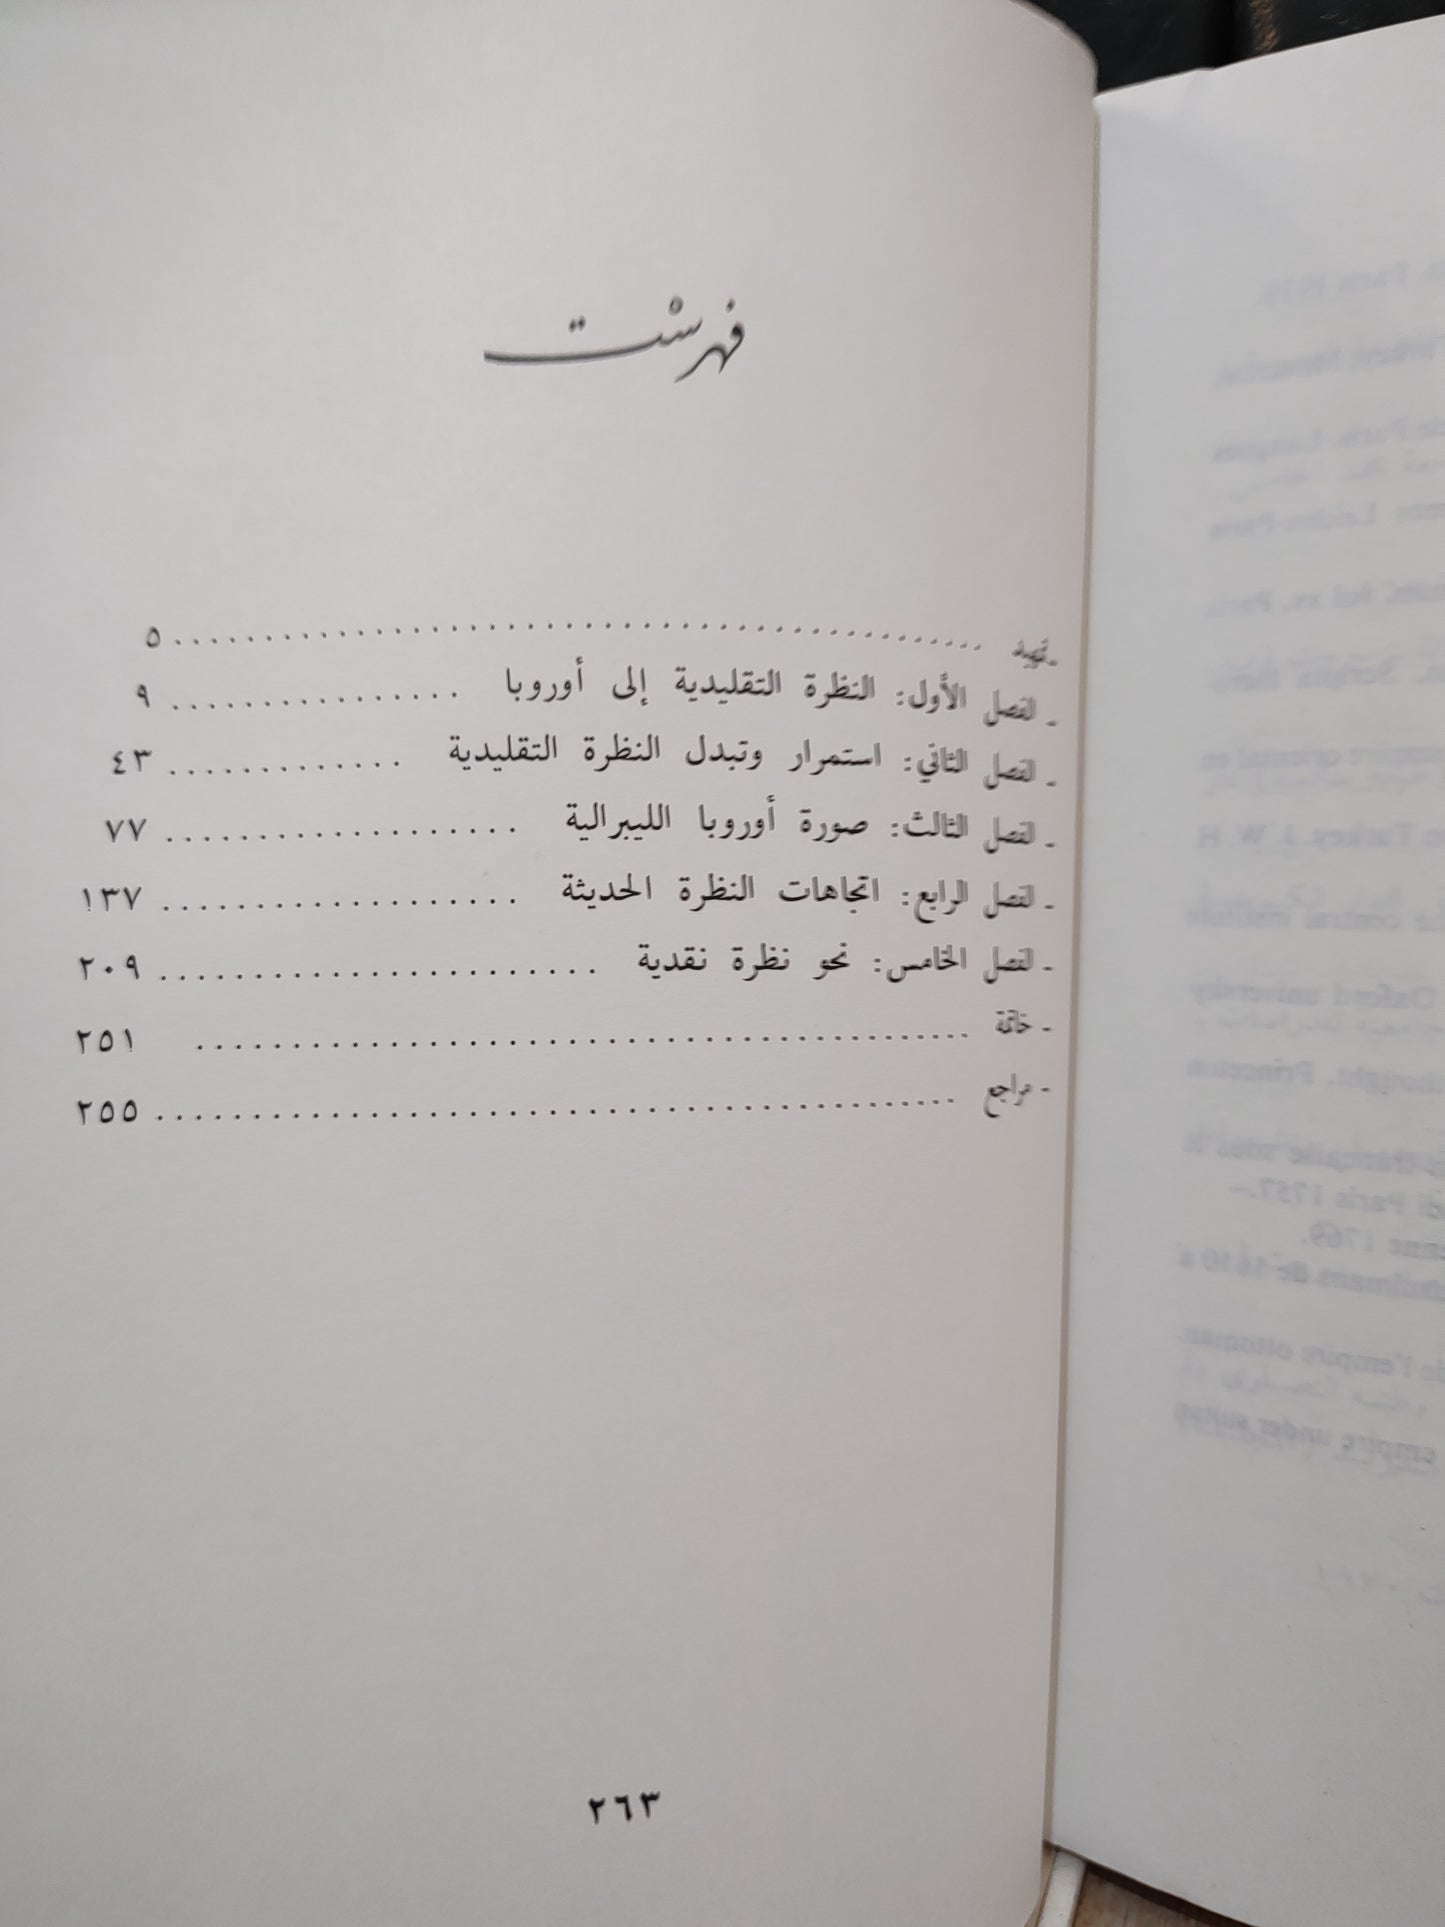 فهرست
- تمهيد ........................................ ٥
- الفصل الأول: النظرة التقليدية إلى أوروبا ............... ٩
- الفصل الثاني: استمرار وتبدل النظرة التقليدية ............. ٤٣
- الفصل الثالث: صورة أوروبا الليبرالية .................... ٧٧
- الفصل الرابع: اتجاهات النظرة الحديثة .................... ١٣٧
- الفصل الخامس: نحو نظرة نقدية ......................... ٢٠٩
- خاتمة ........................................ ٢٥١
- مراجع ........................................ ٢٥٥
٢٦٣